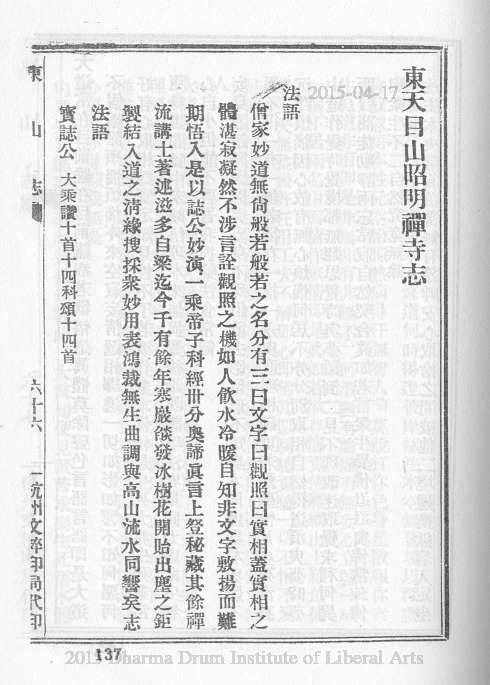 東天目山昭明禪寺志
法語
2015-04-17
僧家妙道無尙般若般若之名分有三曰文字曰觀照曰實相蓋實相之
體湛寂凝然不涉言詮觀照之機如人飮水冷暖自知非文字敷揚而難
期悟入是以誌公妙演一乘帝子科經卅分奧諦眞言上登秘藏其餘禪
流講士著述滋多自梁迄今千有餘年寒巖燄發冰樹花開貽出塵之鉅
製結入道之淸緣搜採衆妙用表鴻裁無生曲調與高山流水同響矣志
法語
寶誌公 大乘讚十首十四科頌十四首
東山志
六十六
杭州文粹印局代印
137
2015 Dharma Drum Institute of Liberal Arts